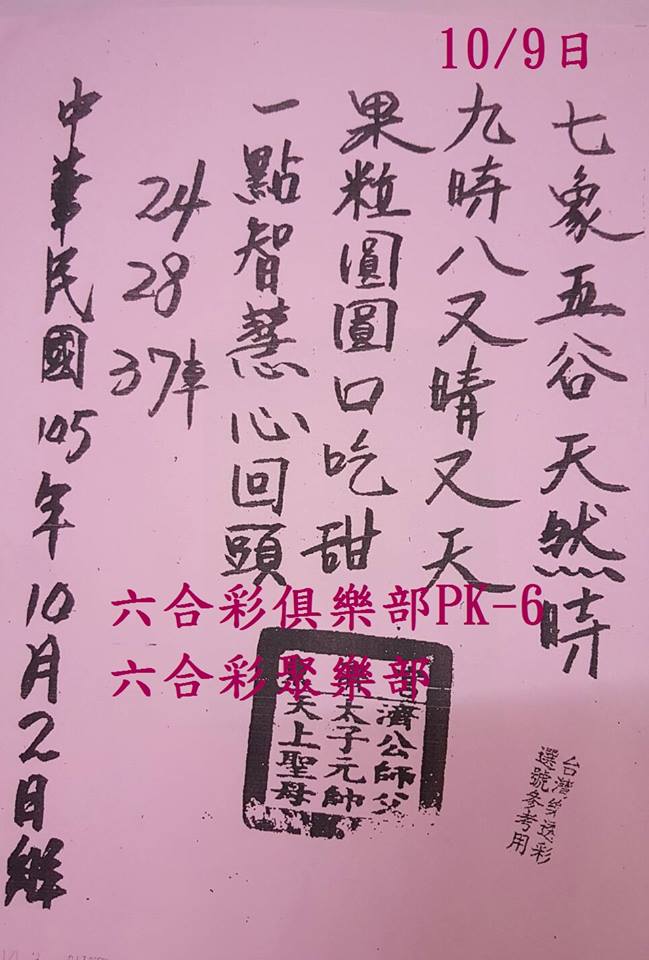 10/9日
七象五谷天然時
九時八又晴又天
果粒圓圓口吃甜
一點智慧心回頭
24
28
37車
中華民國105年10月2日解
六合彩俱樂部PK-6
六合彩聚樂部
濟公師父
太子元帥
天上聖母
台灣樂透彩
選號參考用